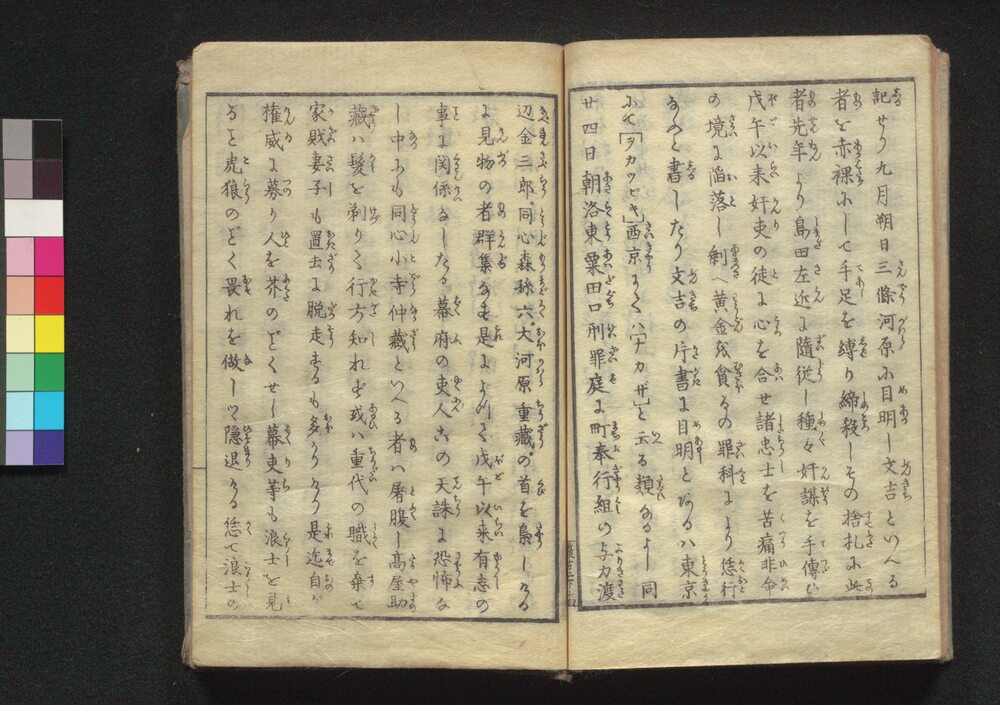 記せり九月朔日三條河原に目明し文吉といへる
者を赤裸にして手足を縛り締殺しその捨札に此
者先年より島田左近に隨従し種々奸謀を手傳ひ
戊午以来奸吏の徒に心を合せ諸忠士を苦痛非命
の境に陥落し剰へ黄金を貪るの罪科により恁行
なふと書したり文吉の片書に目明とあるハ東京
にて「ヲカツピキ」西京にてハ「ナカザ」と云る類なるよし同
廿四日朝洛東粟田口刑罪庭に町奉行組の与力渡
辺金三郎同心森孫六大河原重藏の首を梟しける
よ見物の者群集なす是によりて戊午以来有志の
事に関係なしたる幕府の吏人この天誅に恐怖な
し中にも同心小寺仲藏といへる者ハ屠腹し髙屋助
藏ハ髪を剃りて行方知れず或ハ重代の職を棄て
家財妻子も置去に脱走するも多かりける是迄自が
権威に募り人を芥のごとくせし幕吏等も浪士を見
ると虎狼のごとく畏れを做しツヽ隠退ける恁て浪士の